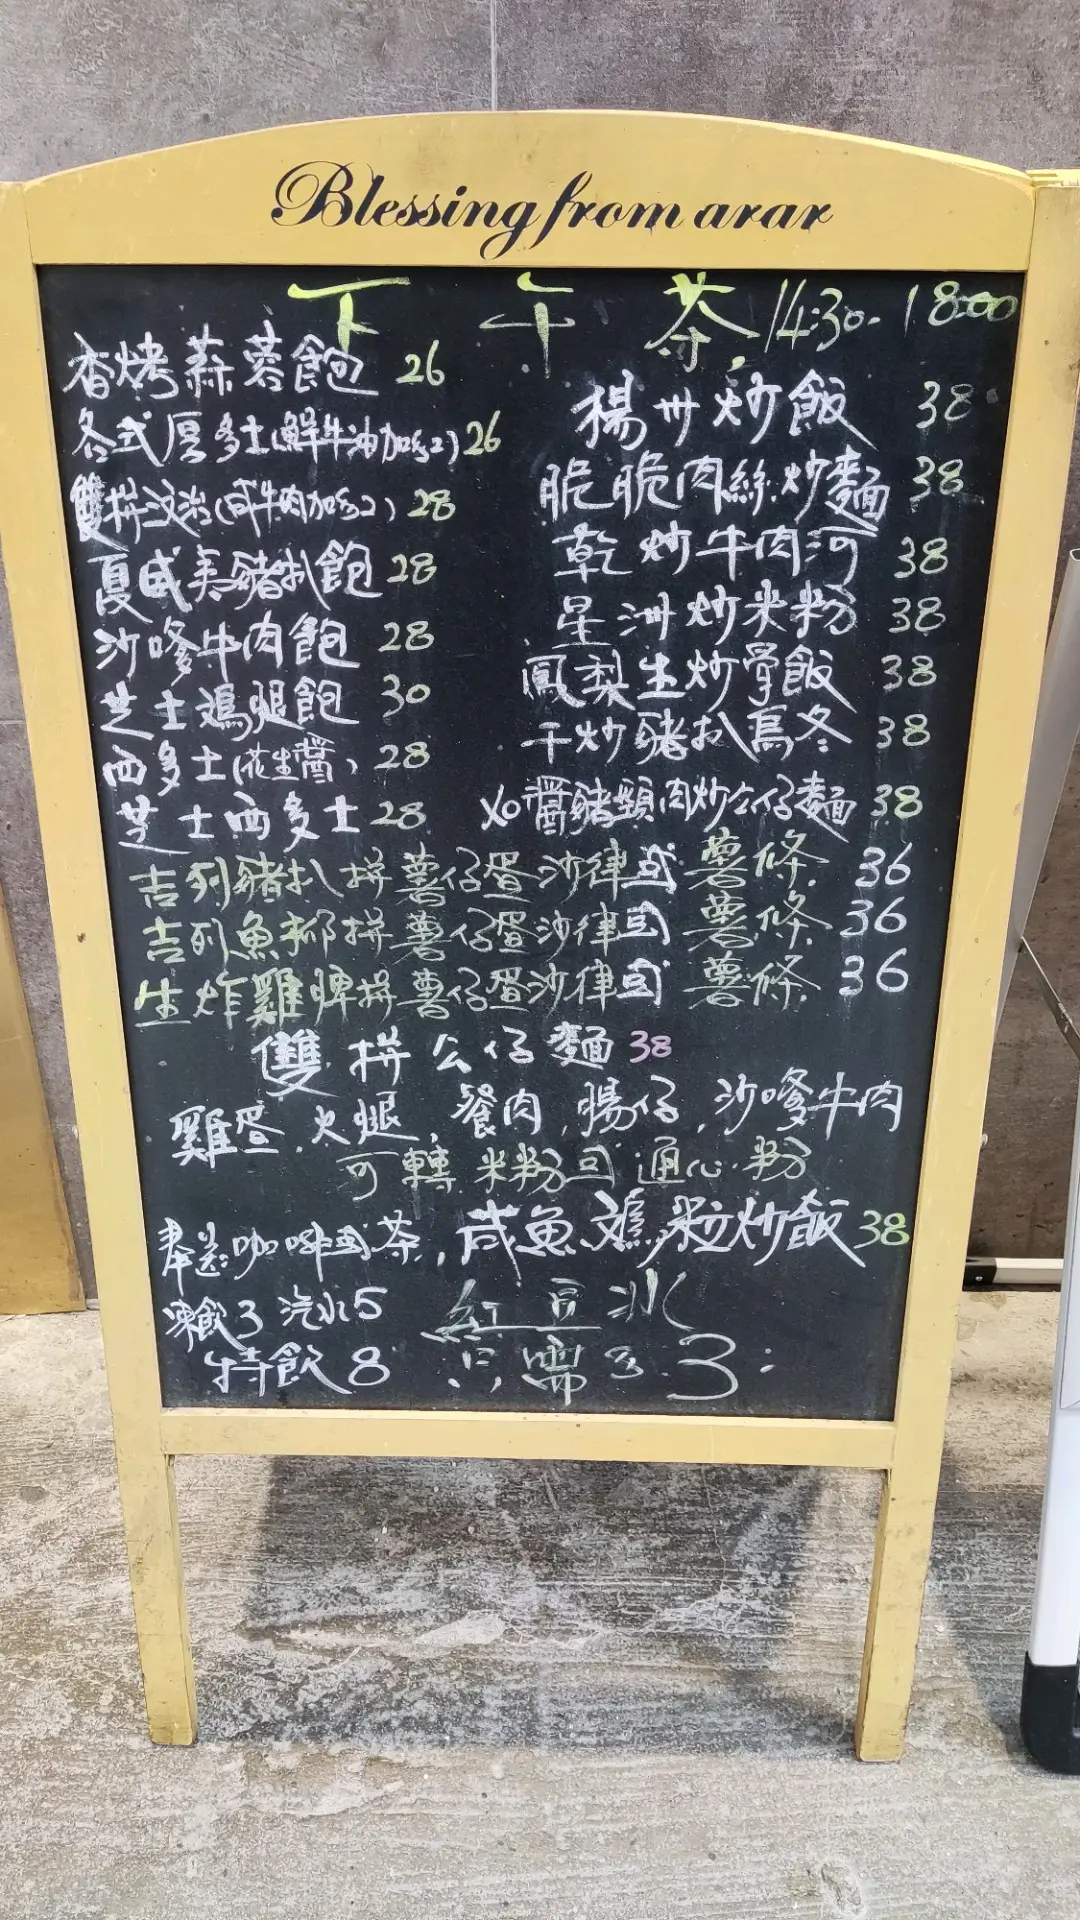 Blessing from arar
下午茶 14:30-18:00
香烤蒜蓉飽 26
各式厚多士(鮮牛油加$2) 26
雙拼文治(咸牛肉加$2) 28
夏威夷豬扒飽 28
沙嗲牛肉飽 28
芝士鴻腿飽 30
西多士(花生醬) 28
芝士西多士 28
楊卅炒飯 38
脆脆肉絲炒麵 38
乾炒牛肉河 38
星洲炒米粉 38
鳳梨生炒骨飯 38
干炒豬扒烏冬 38
XO醬豬頸肉炒公仔麵 38
吉列豬扒拼薯仔蛋沙律或薯條 36
吉列魚柳拼薯仔蛋沙律或薯條 36
生炸雞脾拼薯仔蛋沙律或薯條 36
雙拼公仔麵 38
雞蛋,火腿,餐肉,腸仔,沙嗲牛肉
可轉米粉或通心粉
奉送咖啡或茶,咸魚鷄粒炒飯 38
凍飲3 汽水5
特飲8
紅豆冰
只需多3